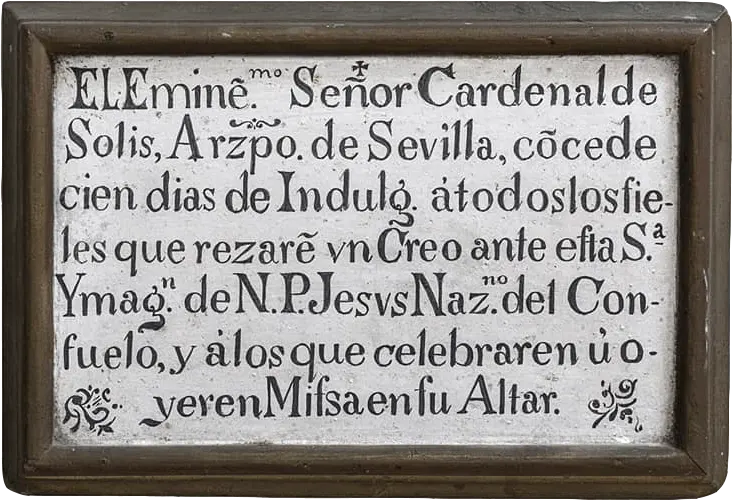 ELEminẽ.ᵐᵒ Señor Cardenal de
Solis, Arz̃p̃o. de Sevilla, cõcede
cien dias de Indulg̃. átodos los fie-
les que rezarẽ vn Créo ante eſta S.ª
Ymag.ⁿ de N.P. Jesvs Naz.ⁿᵒ del Con-
ſuelo, y álos que celebraren ú o-
yeren Miſsa en ſu Altar.